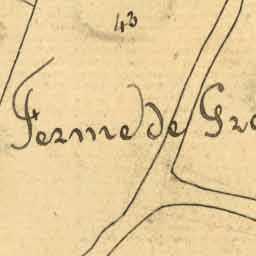 43
Ferme de Gro